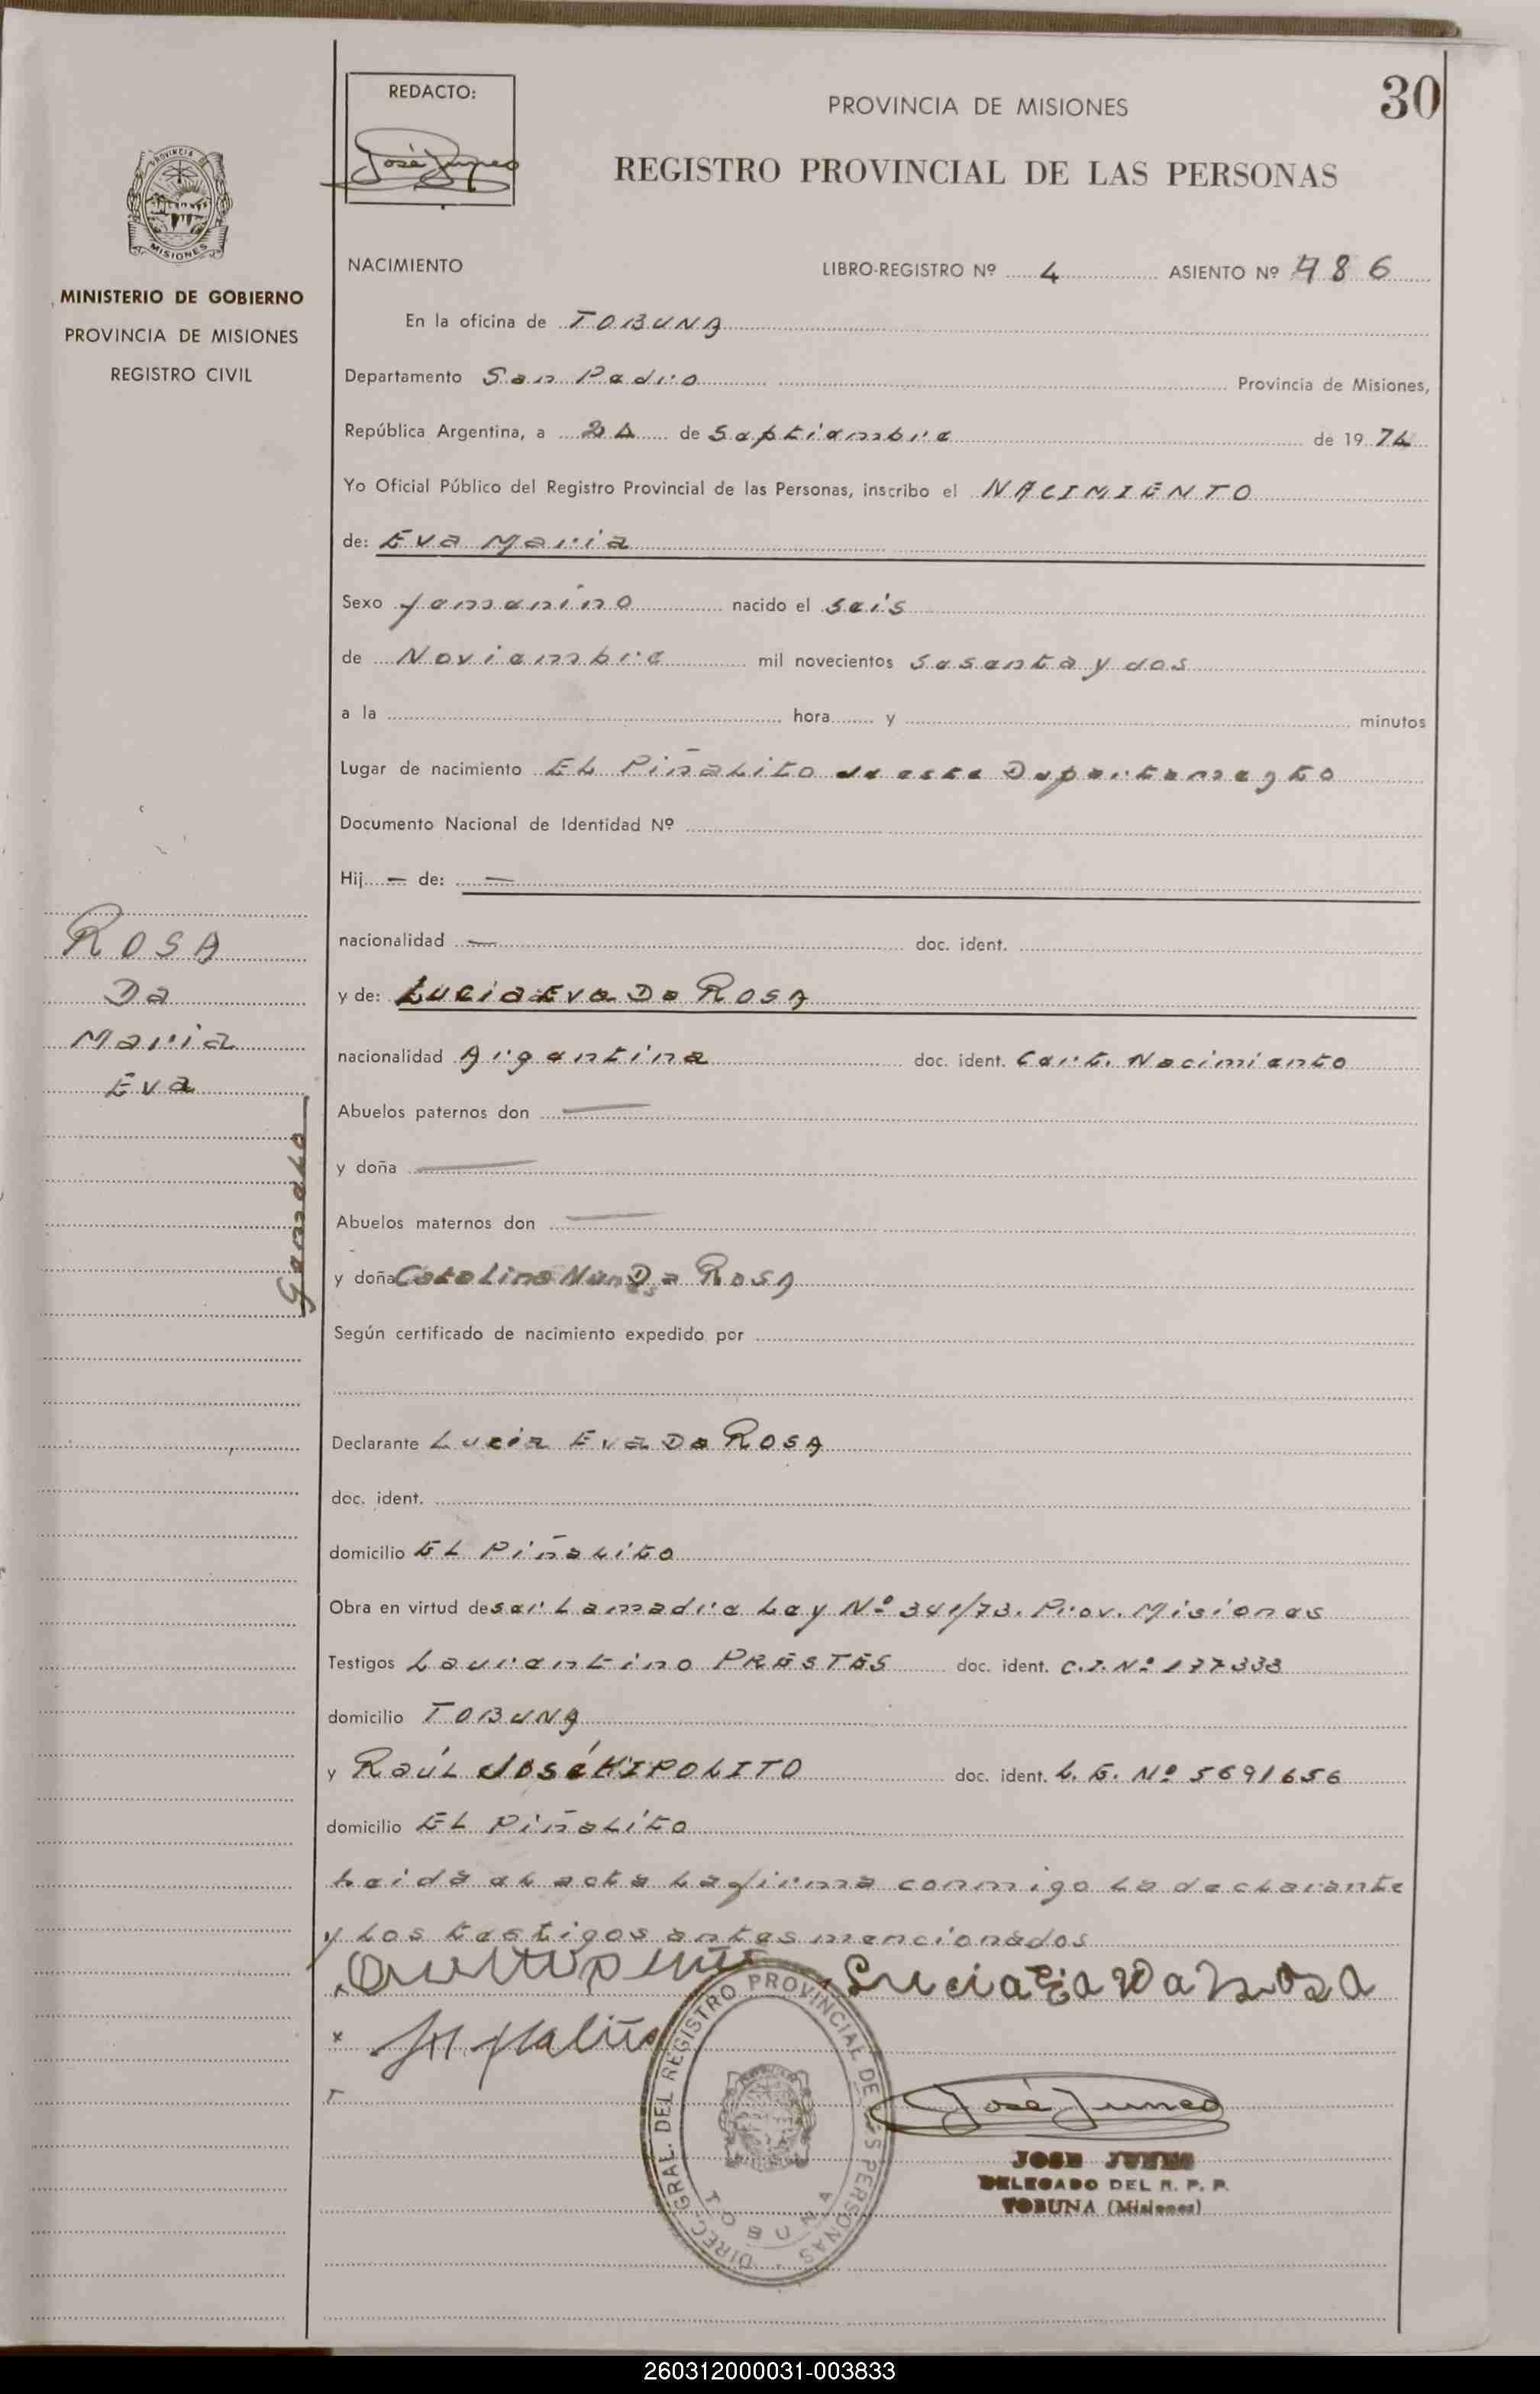 REDACTO:
José Juneo
PROVINCIA DE MISIONES
30
REGISTRO PROVINCIAL DE LAS PERSONAS
PROVINCIA DE
MISIONES
MINISTERIO DE GOBIERNO
PROVINCIA DE MISIONES
REGISTRO CIVIL
NACIMIENTO LIBRO-REGISTRO Nº 4 ASIENTO Nº 986
En la oficina de TOBUNA
Departamento San Pedro Provincia de Misiones,
República Argentina, a 24 de Septiembre de 1974
Yo Oficial Público del Registro Provincial de las Personas, inscribo el NACIMIENTO
de: Eva Maria
Sexo femenino nacido el seis
de Noviembre mil novecientos sesenta y dos
a la hora y minutos
Lugar de nacimiento EL Piñalito de este Departamento
Documento Nacional de Identidad Nº
Hij — de: —
nacionalidad — doc. ident.
y de: Lucia Eva Da ROSA
nacionalidad Argentina doc. ident. Cert. Nacimiento
Abuelos paternos don —
y doña —
Abuelos maternos don —
y doña Catalina Nunes Da ROSA
Según certificado de nacimiento expedido por
Declarante Lucia Eva Da ROSA
doc. ident.
domicilio EL Piñalito
Obra en virtud de ser La madre Ley Nº 341/73. Prov. Misiones
Testigos Laurentino PRESTES doc. ident. C.I. Nº 177333
domicilio TOBUNA
y Raúl José HIPOLITO doc. ident. L.E. Nº 5691656
domicilio EL Piñalito
Leida el acta La firma conmigo La declarante
y Los testigos antes mencionados
Lucia Eva Da Rosa
José Juneo
JOSE
DELEGADO DEL R. P. P.
TOBUNA (Misiones)
DIREC. GRAL. DEL REGISTRO PROVINCIAL DE LAS PERSONAS
TOBUNA
ROSA
Da
Maria
Eva
260312000031-003833